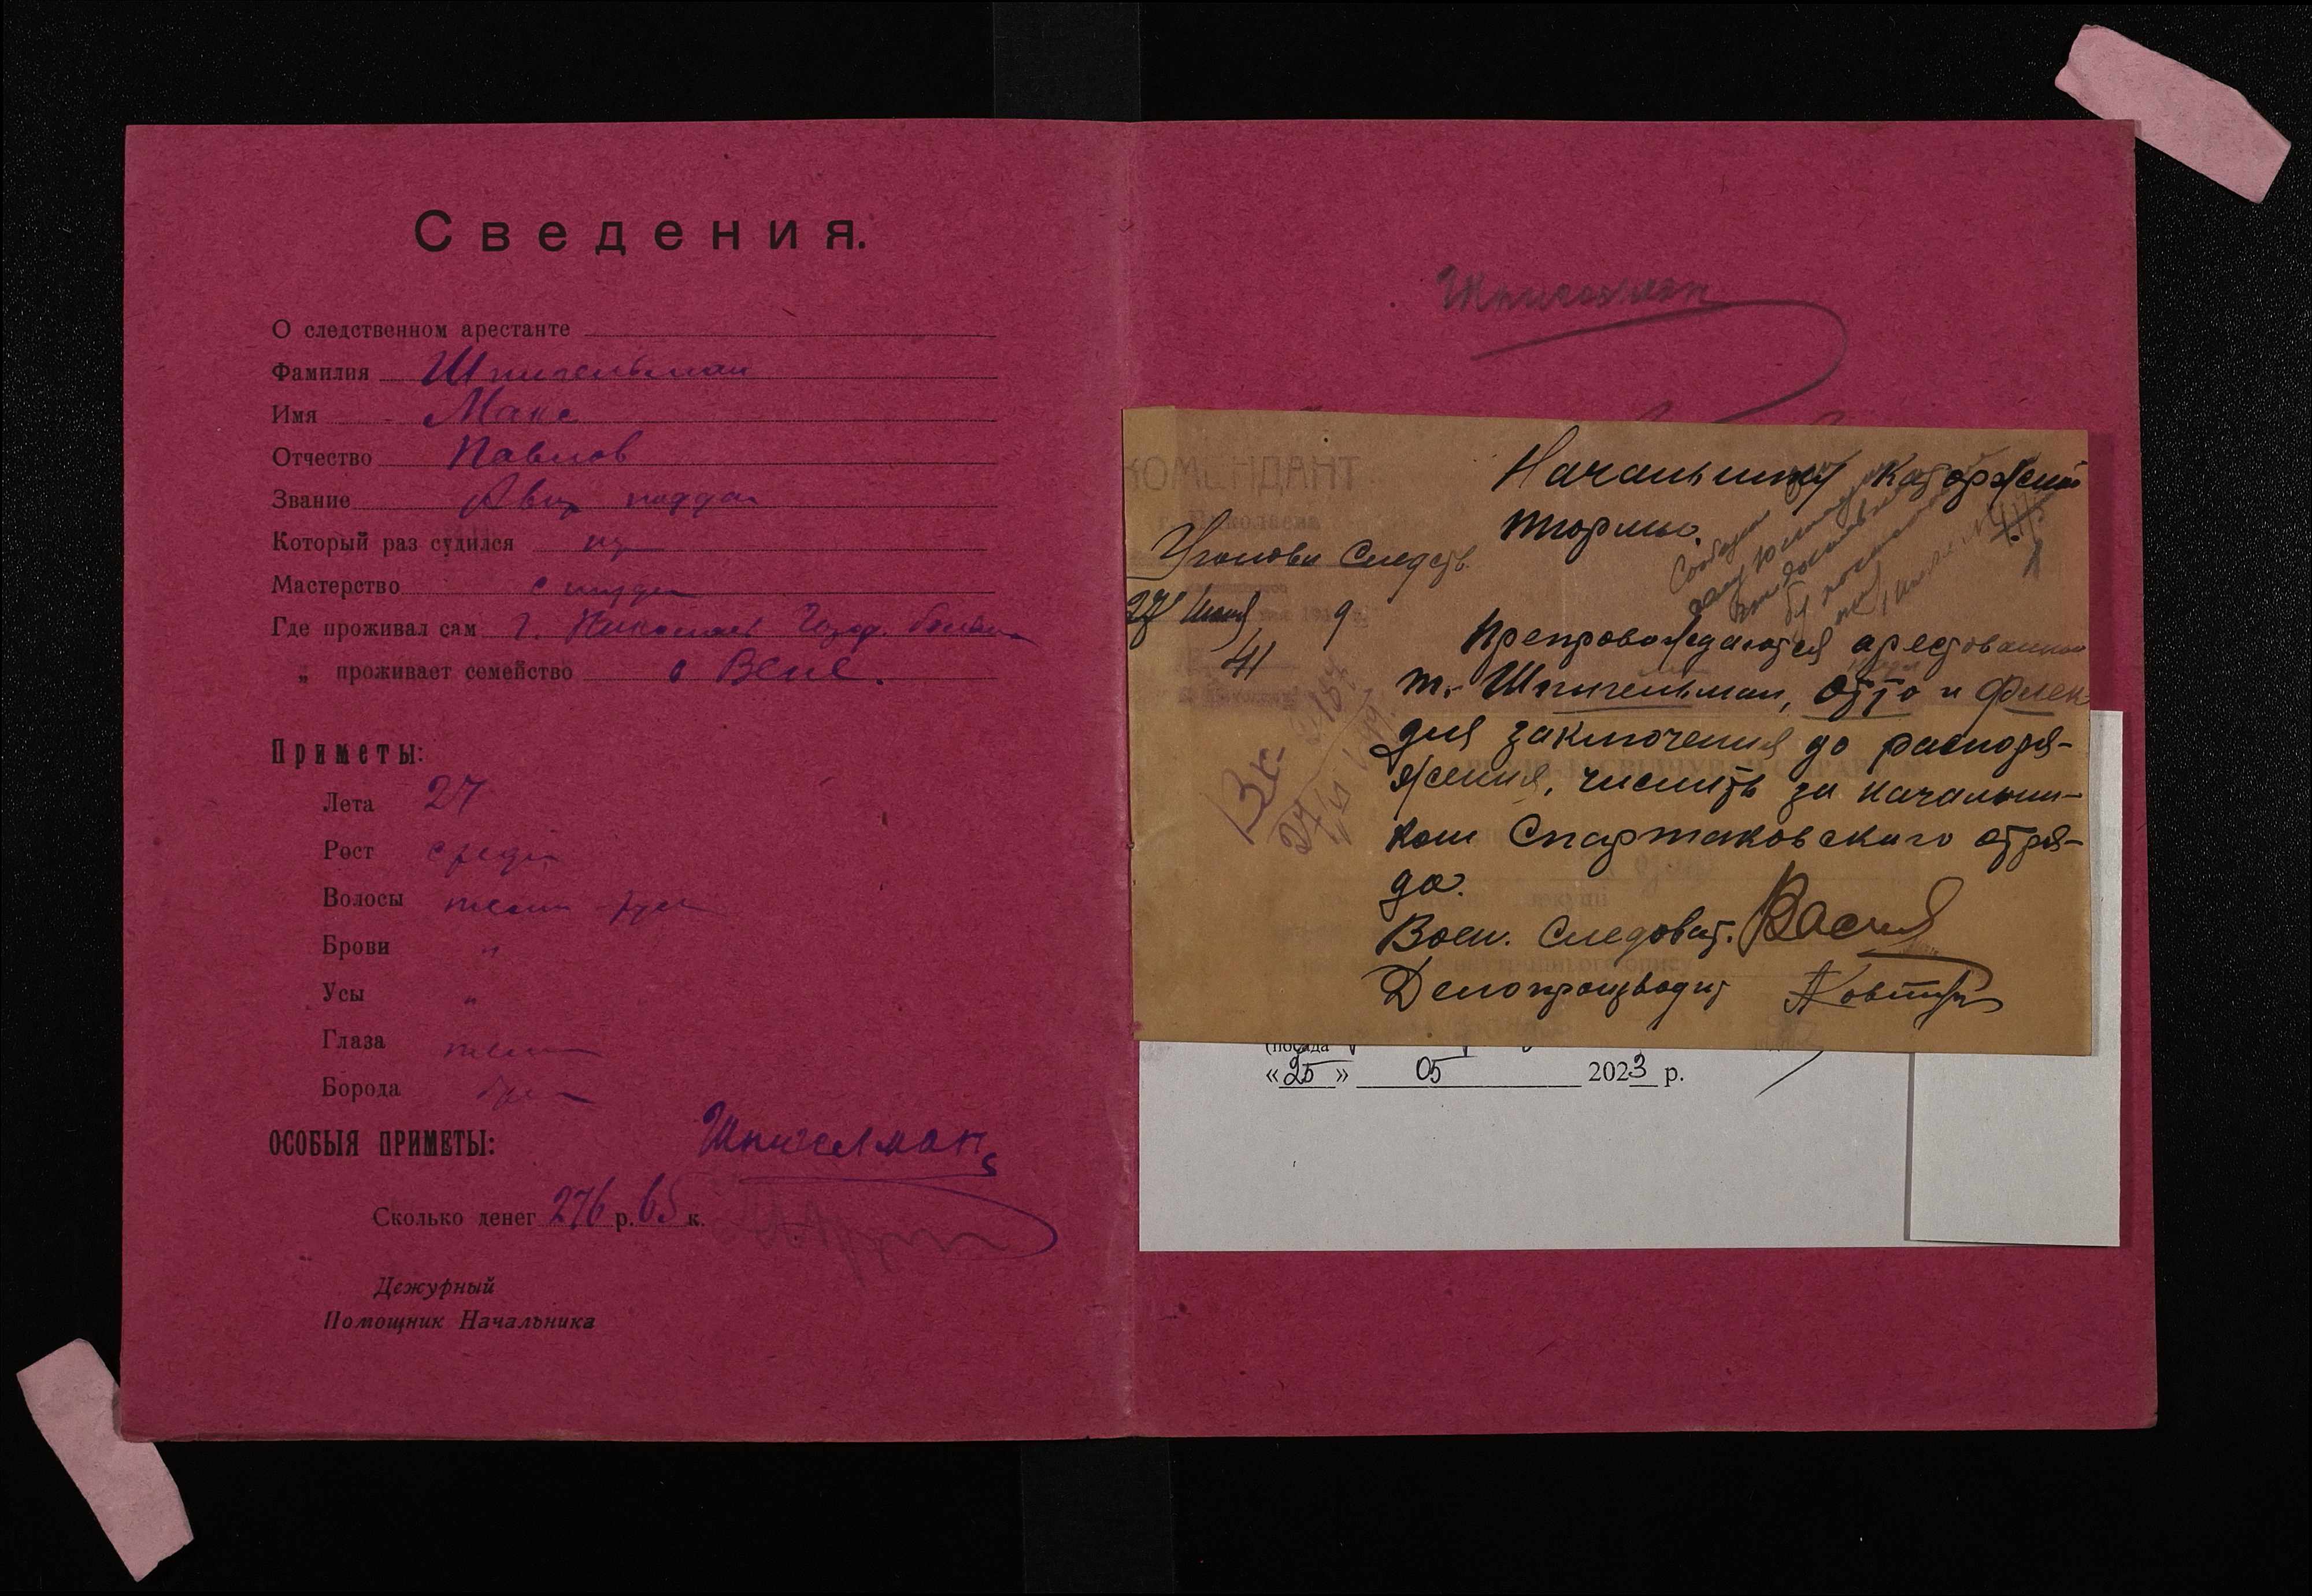 Сведения.
О следственном арестанте
Фамилия Шпигельман
Имя Макс
Отчество Павлов
Звание Авст поддан
Который раз судился
Мастерство студен
Где проживал сам г. Николаев Город. больни
„ проживает семейство в Вене.
Приметы:
Лета 27
Рост средн
Волосы темн - рус
Брови "
Усы "
Глаза темн
Борода бре
ОСОБЫЯ ПРИМЕТЫ:
Шпигелман
Сколько денег 276 р. 65 к.
Дежурный
Помощник Начальника
Шпигельман
КОМЕНДАНТ
г. Николаева
Уголовн Следств.
27 Июня 9
41
Начальнику Каторжной
тюрмы.
Препровождаются арестованные
т. Шпигельман, Отто и Флек
для заключения до распоря-
жения, числить за начальни-
ком Спартаковского отря-
да.
Воен. Следоват.
Делопроизводит
(посада
«25» 05 2023 р.